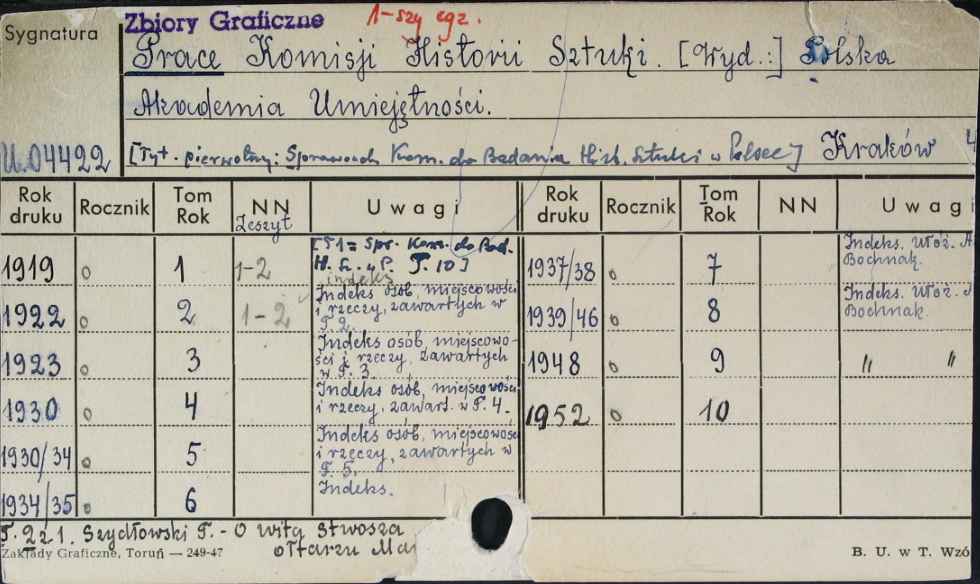 Sygnatura
Zbiory Graficzne
1-szy egz.
Prace Komisji Historii Sztuki. [Wyd.:] Polska
Akademia Umiejętności.
U.04422
[Tyt. pierwotny: Sprawozd. Kom. do Badania Hist. Sztuki w Polsce] Kraków 4
Rok druku Rocznik Tom Rok NN Zeszyt Uwagi Rok druku Rocznik Tom Rok NN Uwagi
1919 o 1 1-2 [T1 = Spr. Kom. do Bad.
H. Sz. w P. T. 10]
indeks
1922 o 2 1-2 Indeks osób, miejscowości
i rzeczy, zawartych w
T. 2.
1923 o 3 Indeks osób, miejscowo-
ści i rzeczy, zawartych
w T. 3
1930 o 4 Indeks osób, miejscowości
i rzeczy, zawart. w T. 4.
1930/34 o 5 Indeks osób, miejscowości
i rzeczy, zawartych w
T. 5.
1934/35 o 6 Indeks.
1937/38 o 7 Indeks. Ułoż. A
Bochnak.
1939/46 o 8 Indeks. Ułoż.
Bochnak.
1948 o 9 " "
1952 o 10
T. 2 z 1. Szydłowski T. - O Wita Stwosza
ołtarzu Mar
Zakłady Graficzne, Toruń — 249-47
B. U. w T. Wzó